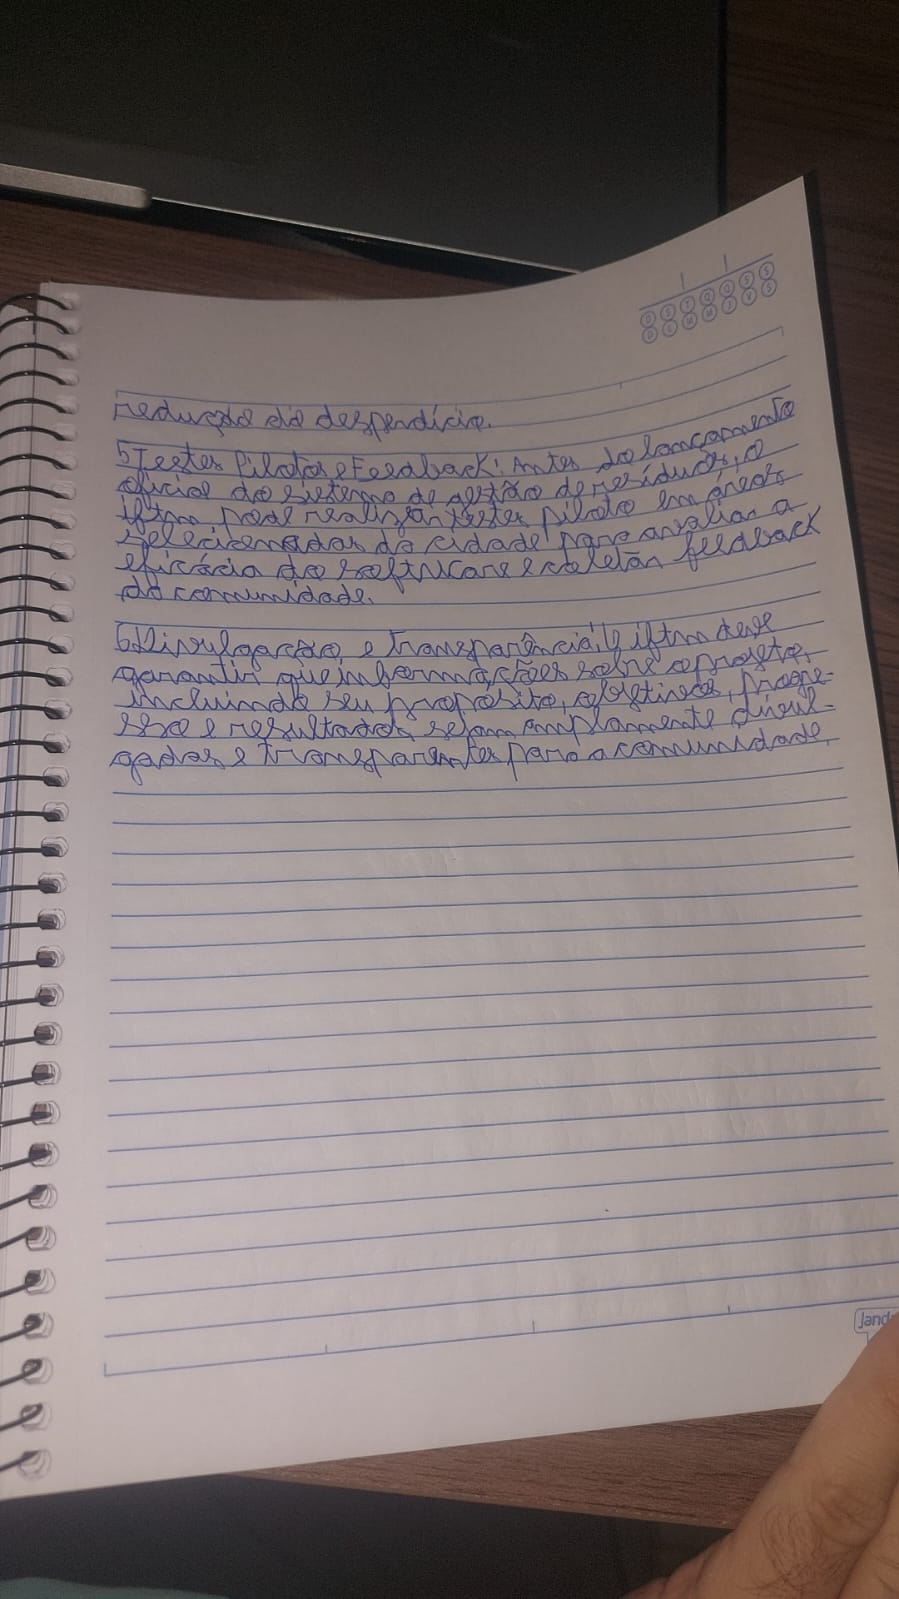 D S T Q Q S S
D L M M J V S
redução do desperdício.
5)Testes Pilotos e Feedback: Antes do lançamento
oficial do sistema de gestão de resíduos, o
iftm pode realizar testes piloto em áreas
selecionadas da cidade para avaliar a
eficácia do software e coletar feedback
da comunidade.
6)Divulgação e transparência: O iftm deve
garantir que informações sobre o projeto,
incluindo seu propósito, objetivos, progre-
sso e resultados sejam amplamente divul-
gadas e transparentes para a comunidade.
Janda